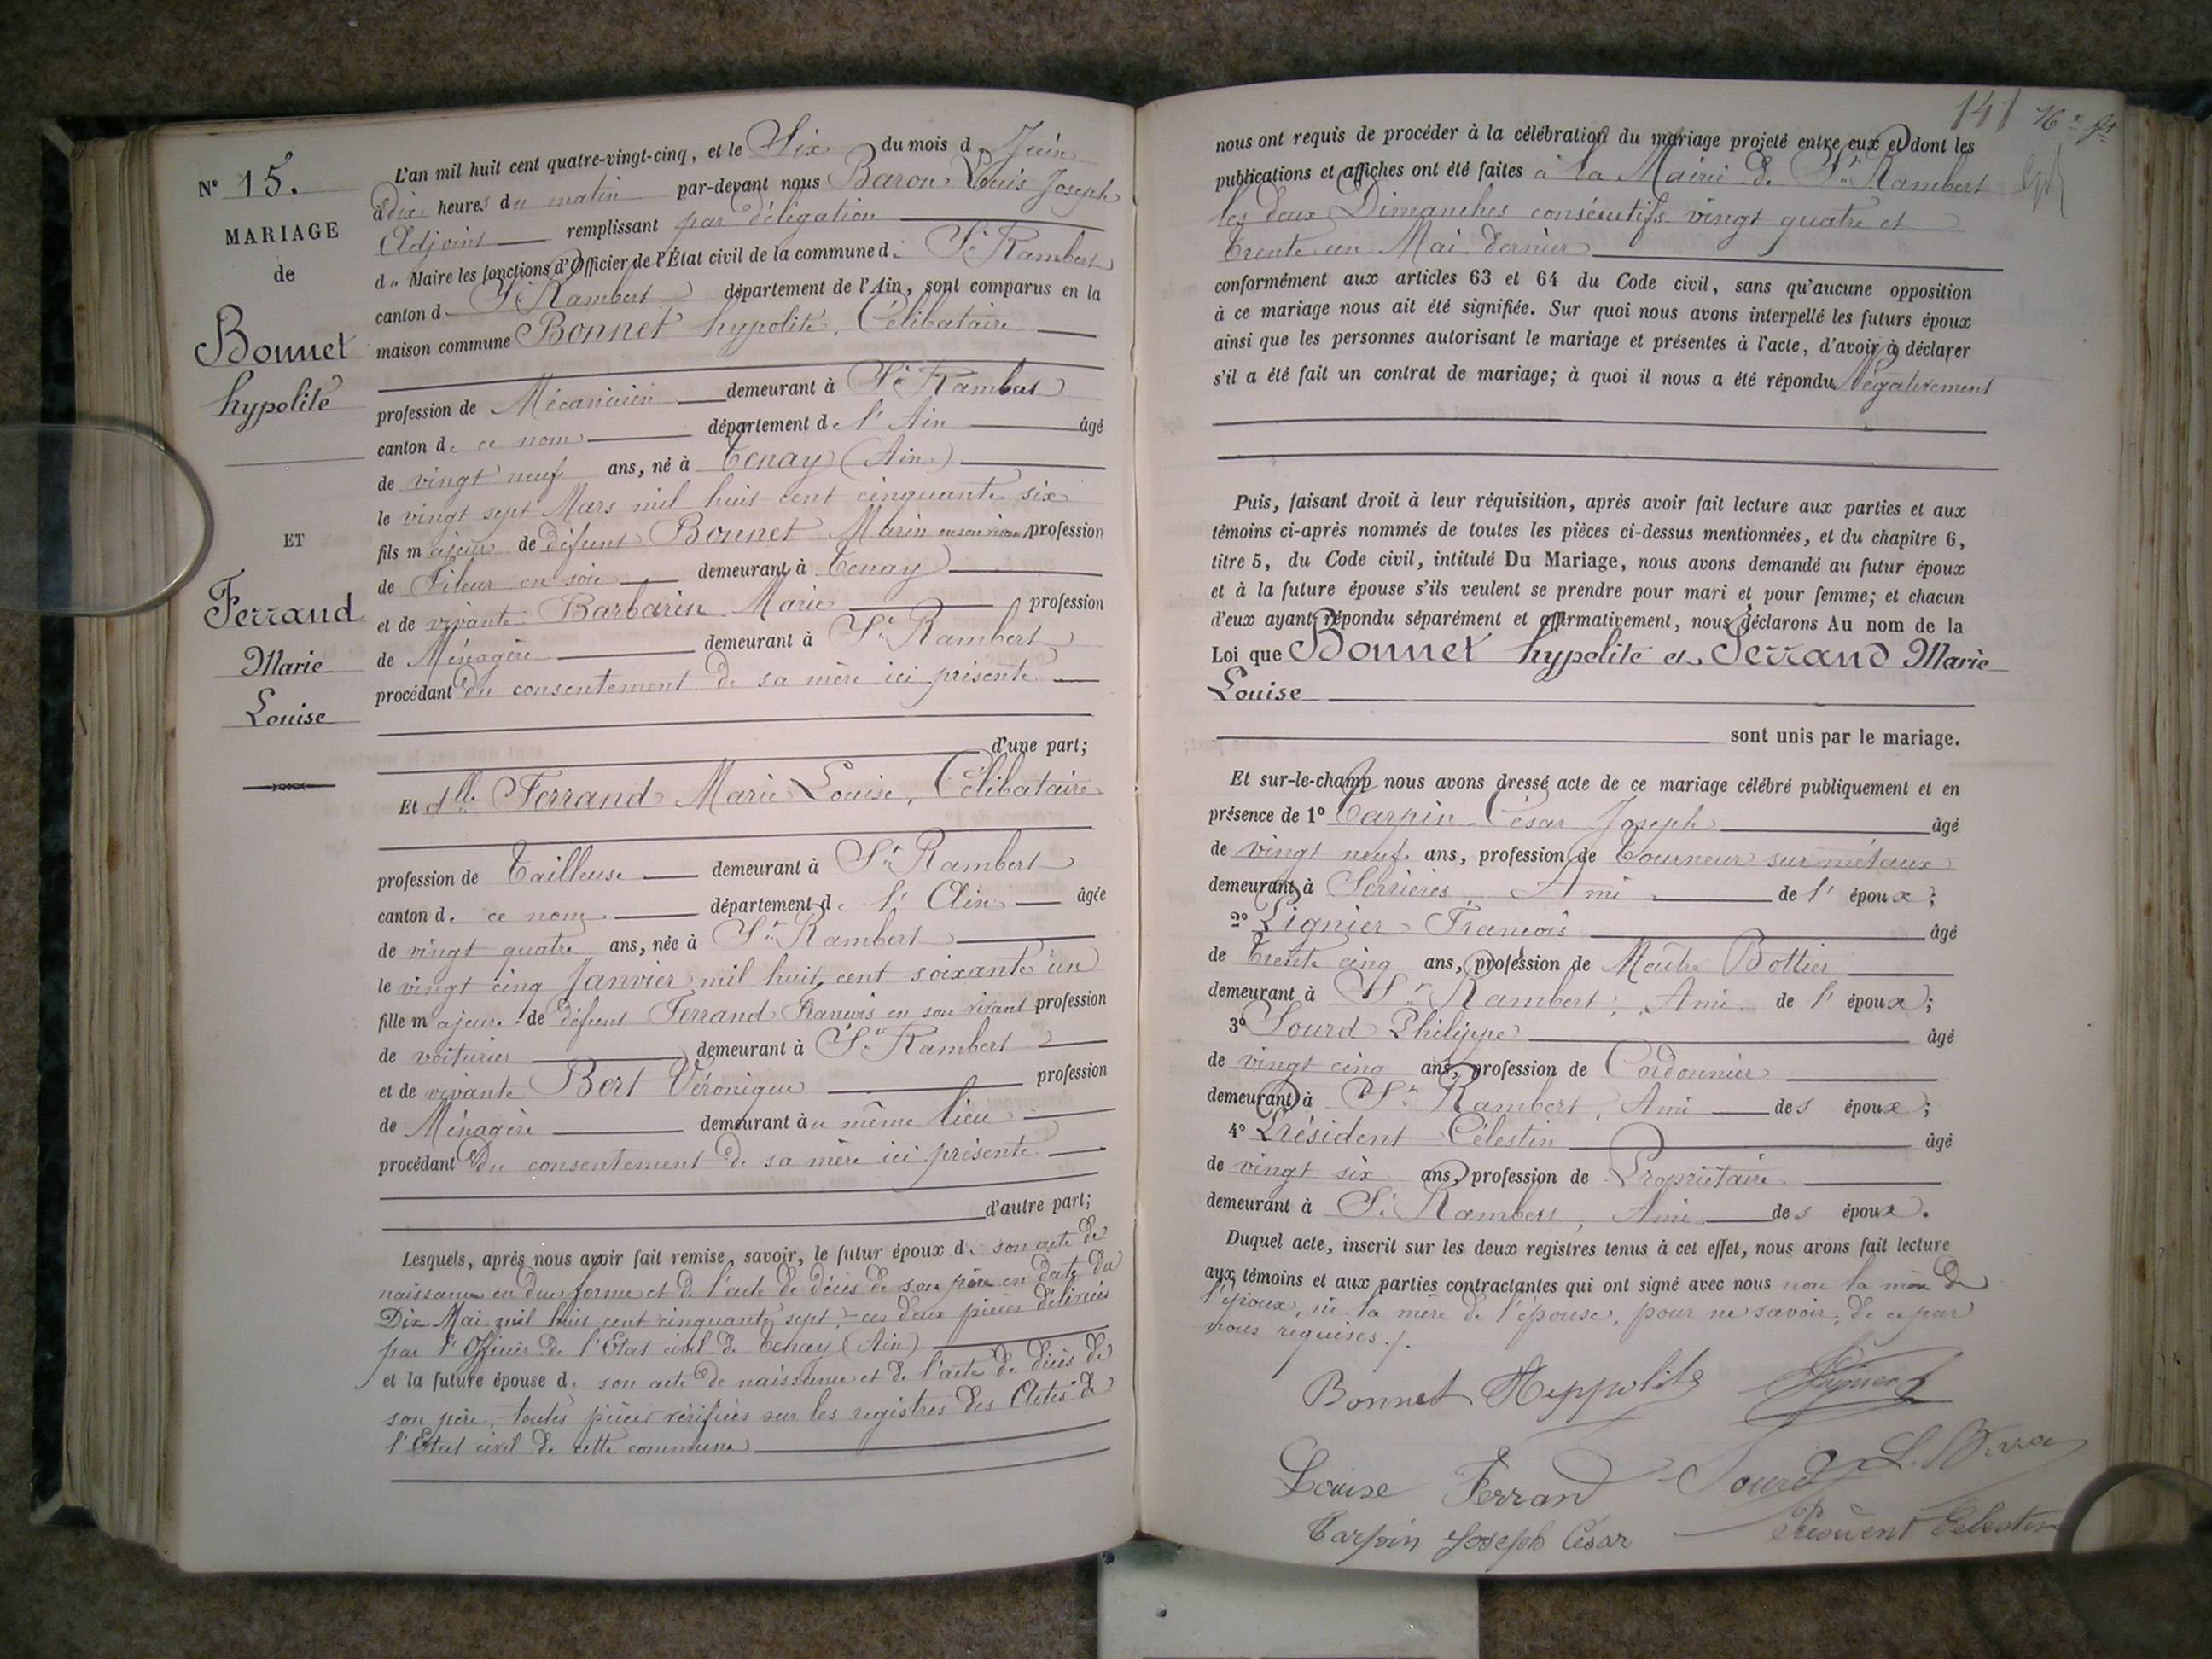 N° 15.
MARIAGE
de
Bonnet
hypolite
ET
Ferrand
Marie
Louise
L'an mil huit cent quatre-vingt-cinq, et le Six du mois de Juin
à dix heures du matin par-devant nous Baron Louis Joseph
Adjoint remplissant par délégation
du Maire les fonctions d'Officier de l'État civil de la commune de St Rambert
canton de St Rambert département de l'Ain, sont comparus en la
maison commune Bonnet hypolite, Célibataire
profession de Mécanicien demeurant à St Rambert
canton de ce nom département de l'Ain âgé
de vingt neuf ans, né à Tenay (Ain)
le vingt sept Mars mil huit cent cinquante six
fils majeur de défunt Bonnet Marin en son vivant profession
de Fileur en soie demeurant à Tenay
et de vivante Barbarin Marie profession
de Ménagère demeurant à St Rambert
procédant du consentement de sa mère ici présente
d'une part;
Et dlle Ferrand Marie Louise, Célibataire
profession de Tailleuse demeurant à St Rambert
canton de ce nom département de l'Ain âgée
de vingt quatre ans, née à St Rambert
le vingt cinq Janvier mil huit cent soixante un
fille majeure de défunt Ferrand François en son vivant profession
de voiturier demeurant à St Rambert
et de vivante Bert Véronique profession
de Ménagère demeurant au même lieu
procédant du consentement de sa mère ici présente
d'autre part;
Lesquels, après nous avoir fait remise, savoir, le futur époux de son acte de
naissance en due forme et de l'acte de décès de son père en date du
Dix Mai mil huit cent cinquante sept, ces deux pièces délivrées
par l'Officier de l'Etat civil de Tenay (Ain)
et la future épouse de son acte de naissance et de l'acte de décès de
son père, toutes pièces vérifiées sur les registres des Actes de
l'Etat civil de cette commune
141
nous ont requis de procéder à la célébration du mariage projeté entre eux et dont les
publications et affiches ont été faites à la Mairie de St Rambert
les deux Dimanches consécutifs vingt quatre et
trente un Mai dernier
conformément aux articles 63 et 64 du Code civil, sans qu'aucune opposition
à ce mariage nous ait été signifiée. Sur quoi nous avons interpellé les futurs époux
ainsi que les personnes autorisant le mariage et présentes à l'acte, d'avoir à déclarer
s'il a été fait un contrat de mariage; à quoi il nous a été répondu Négativement
Puis, faisant droit à leur réquisition, après avoir fait lecture aux parties et aux
témoins ci-après nommés de toutes les pièces ci-dessus mentionnées, et du chapitre 6,
titre 5, du Code civil, intitulé Du Mariage, nous avons demandé au futur époux
et à la future épouse s'ils veulent se prendre pour mari et pour femme; et chacun
d'eux ayant répondu séparément et affirmativement, nous déclarons Au nom de la
Loi que Bonnet hypolite et Ferrand Marie
Louise
sont unis par le mariage.
Et sur-le-champ nous avons dressé acte de ce mariage célébré publiquement et en
présence de 1° Tarpin César Joseph âgé
de vingt neuf ans, profession de Tourneur sur métaux
demeurant à Serrières Ami de l'époux;
2° Lignier François âgé
de Trente cinq ans, profession de Maître Bottier
demeurant à St Rambert, Ami de l'époux;
3° Sourd Philippe âgé
de vingt cinq ans, profession de Cordonnier
demeurant à St Rambert, Ami des époux;
4° Président Célestin âgé
de vingt six ans, profession de Propriétaire
demeurant à St Rambert, Ami des époux.
Duquel acte, inscrit sur les deux registres tenus à cet effet, nous avons fait lecture
aux témoins et aux parties contractantes qui ont signé avec nous non la mère de
l'époux, ni la mère de l'épouse, pour ne savoir, de ce par
nous requises./.
Bonnet Heppolite Lignier
Louise Ferrand Sourd L. Baron
Tarpin Joseph César Président Celestin